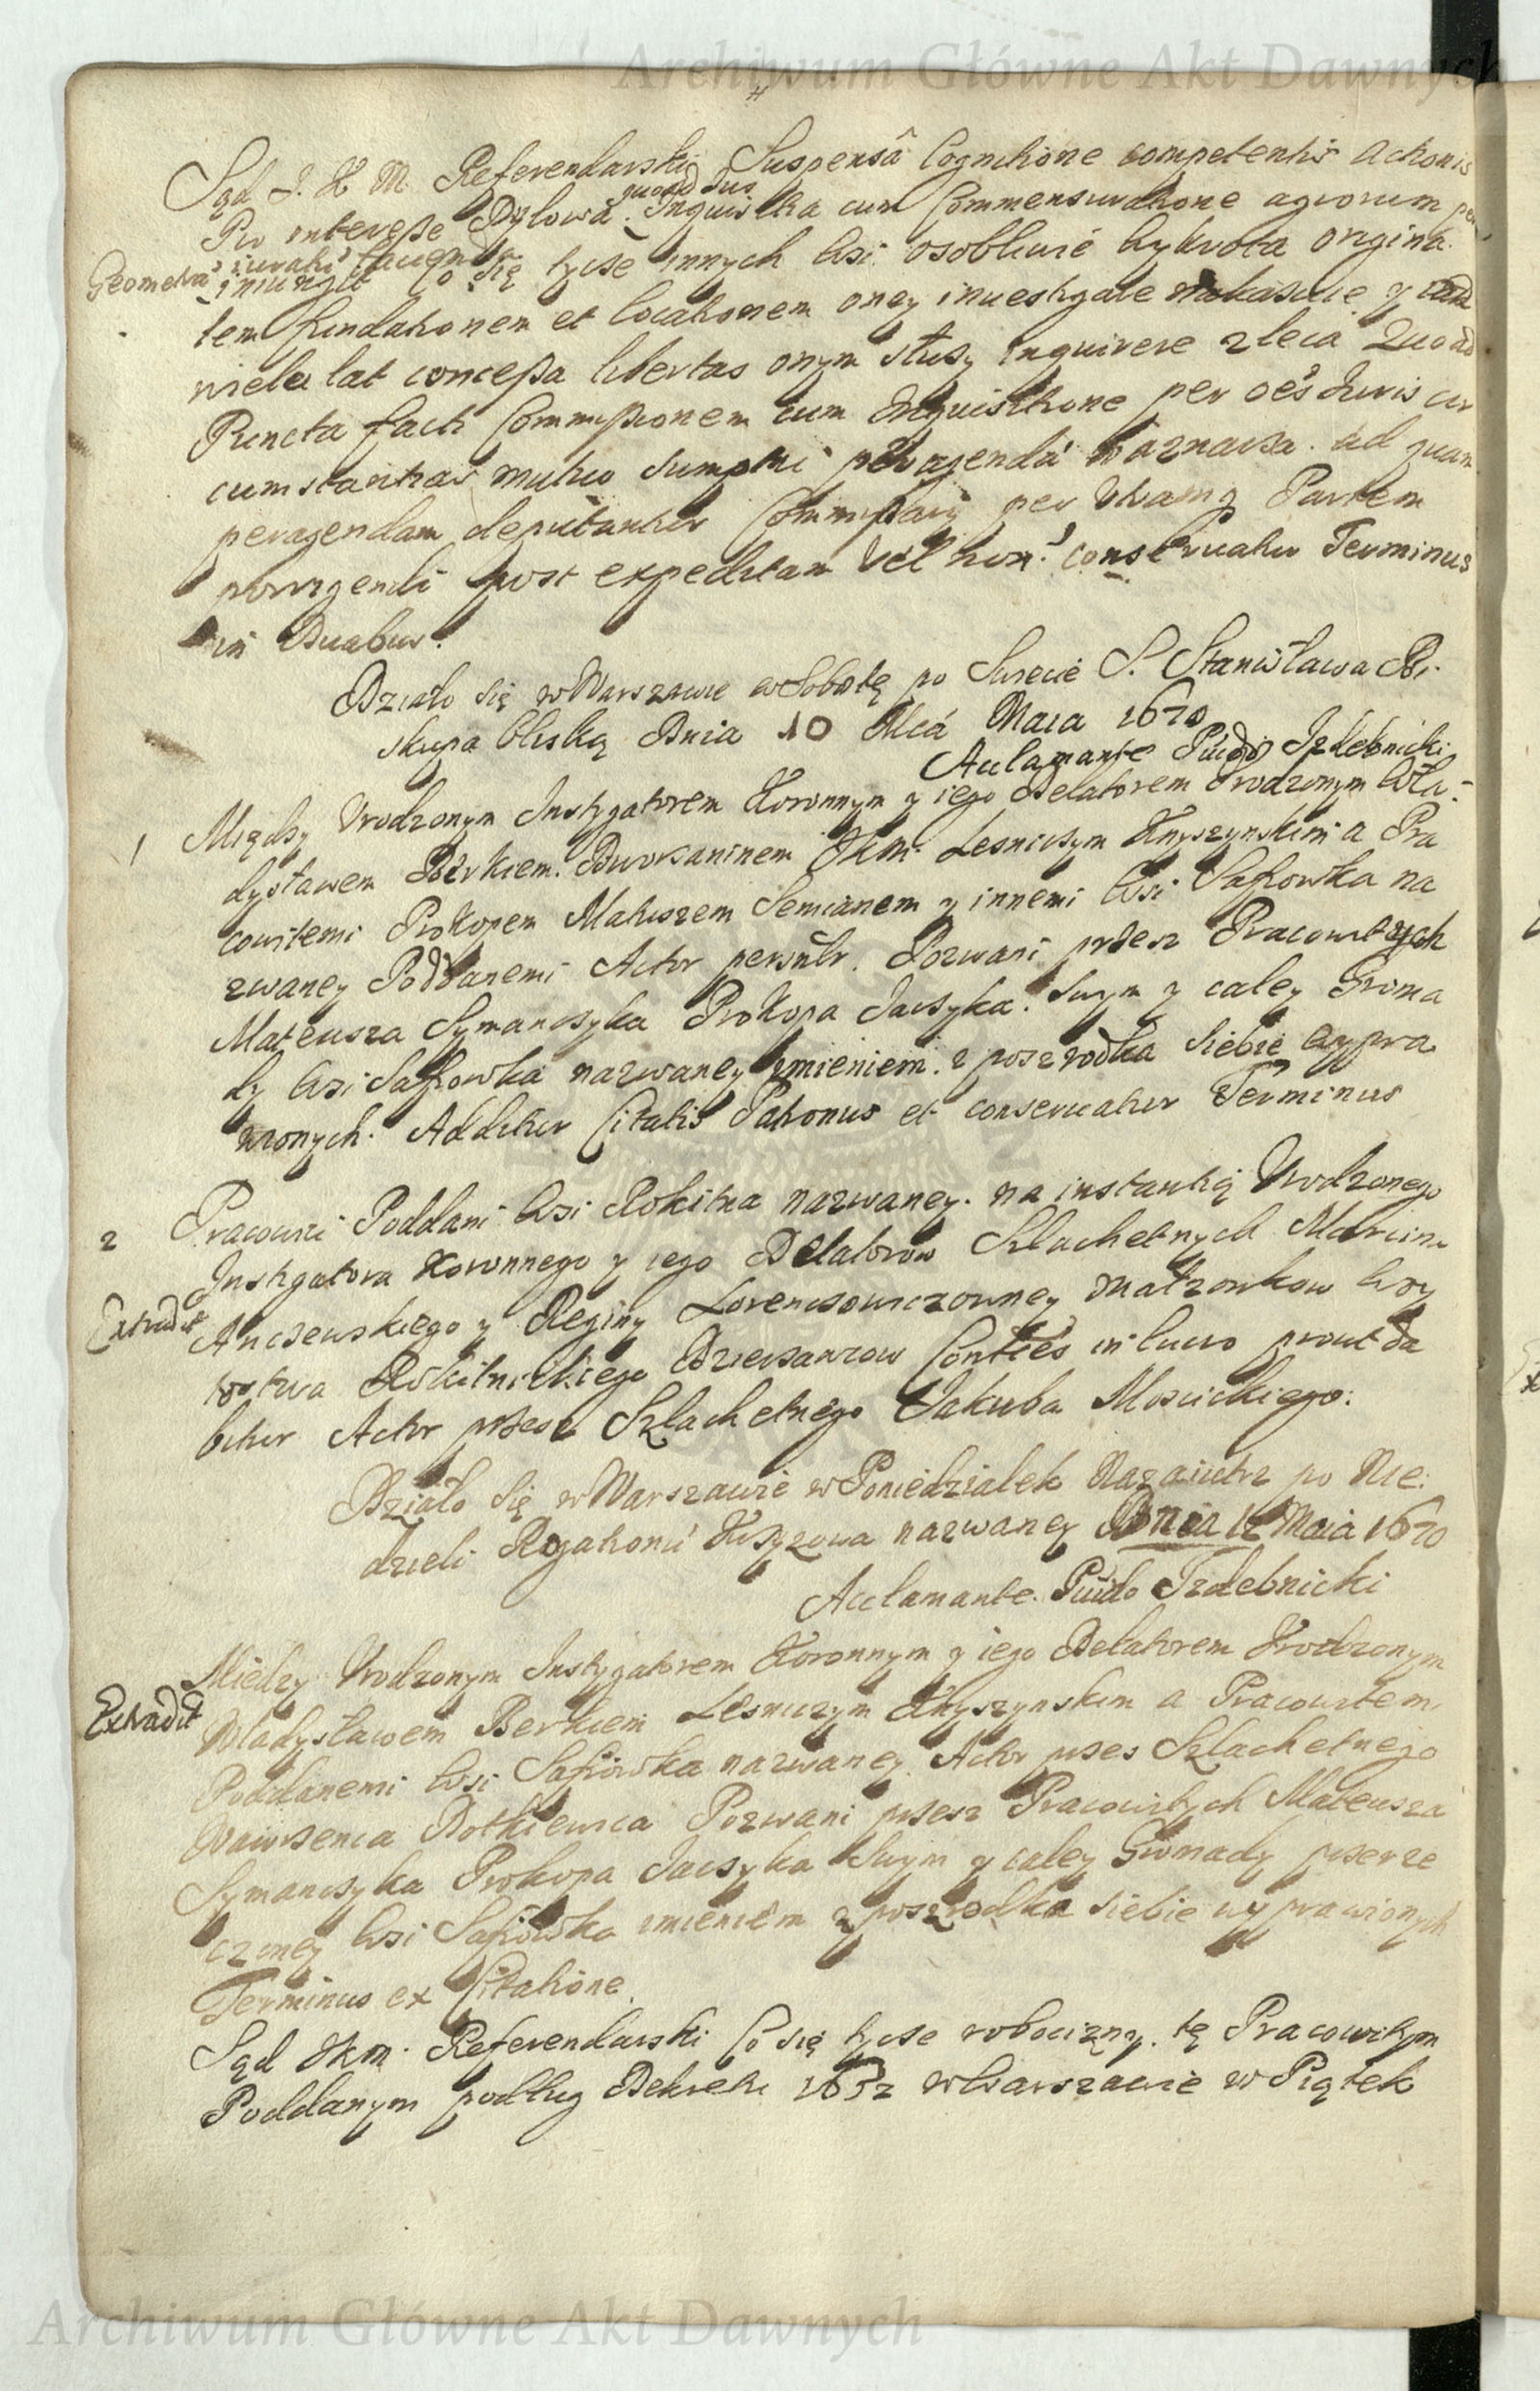 Archiwum Główne Akt Dawnych
Sąd J. K M. Referendarski Suspensâ Cognitione competentis actionis
quoad Jus
Pro interesse Dylowa Inquisitia cum Commensuratione agrorum per
Geometrâ iuratû faciend
iniungit Co się tycze innych Wsi osobliwie Wykrota origina
lem fundationem et locationem oney investigare nakazuie y iak
wiele lat concessa libertas onym służy inquirere zleca Quoad
Puncta facti Commissionem cum Inquisitione per oēs Juris cir
cumstantias mutuo sumptu peragendâ naznacza. ad quam
peragendam deputantur Commissarij per Utramq Partem
porrigendi post expeditam vel non. conservatur Terminus
in Duabus.
Działo się w Warszawie w Sobotę po Swięcie S. Stanisława Bi-
skupa bliską Dnia 10 Mca Maia 1670
Acclamante Puido Izdebnicki
1 Między Urodzonym Instygatorem Koronnym y iego Delatorem Urodzonym Wła-
dysławem Berkiem Dworzaninem JKM. Lesniczym Knyszynskim a Pra
cowitemi Prokopem Matuszem Semianem y innemi Wsi Safrowka na
zwaney Poddanemi Actor personlr. Pozwani przez Pracowitych
Mateusza Symanczyka Prokopa Jaczyka. Swym y całey Groma
dy Wsi Safrowka nazwaney imieniem z poszrodka siebie wypra
wionych. Additur Citatis Patronus et conservatur Terminus
2 Pracowici Poddani Wsi Rokitna nazwaney. na instantią Urodzonego
Instigatora Koronnego y iego Delatorow Szlachetnych Marcina
Extradit
Anczewskiego y Reginy Lorencowiczowney Małżonkow Woy
tostwa Rokitnickiego Dzierzawcow Conties in lucro prout da
bitur Actor przez Szlachetnego Jakuba Moscickiego.
Działo się w Warszawie w Poniedziałek Nazaiutrz po Nie
dzieli Rogationū Krzyzowa nazwaney Dnia 12 Maia 1670
Acclamante. Puido Izdebnicki
Między Urodzonym Instygatorem Koronnym y iego Delatorem Urodzonym
Extradit
Władysławem Berkiem Lesniczym Knyszynskim a Pracowitemi
Poddanemi Wsi Safrowka nazwaney Actor przes Szlachetnego
Wawrzenca Rotkiewica Pozwani przez Pracowitych Mateusza
Symanczyka Prokopa Jaczyka Swym y całey Gromady przerze
czoney Wsi Safrowka imieniem z poszrodka siebie wyprawionych
Terminus ex Citatione
Sąd JKM. Referendarski Co się tycze robocizny. tę Pracowitym
Poddanym podług Dekretu 1652 w Warszawie w Piątek
Archiwum Główne Akt Dawnych